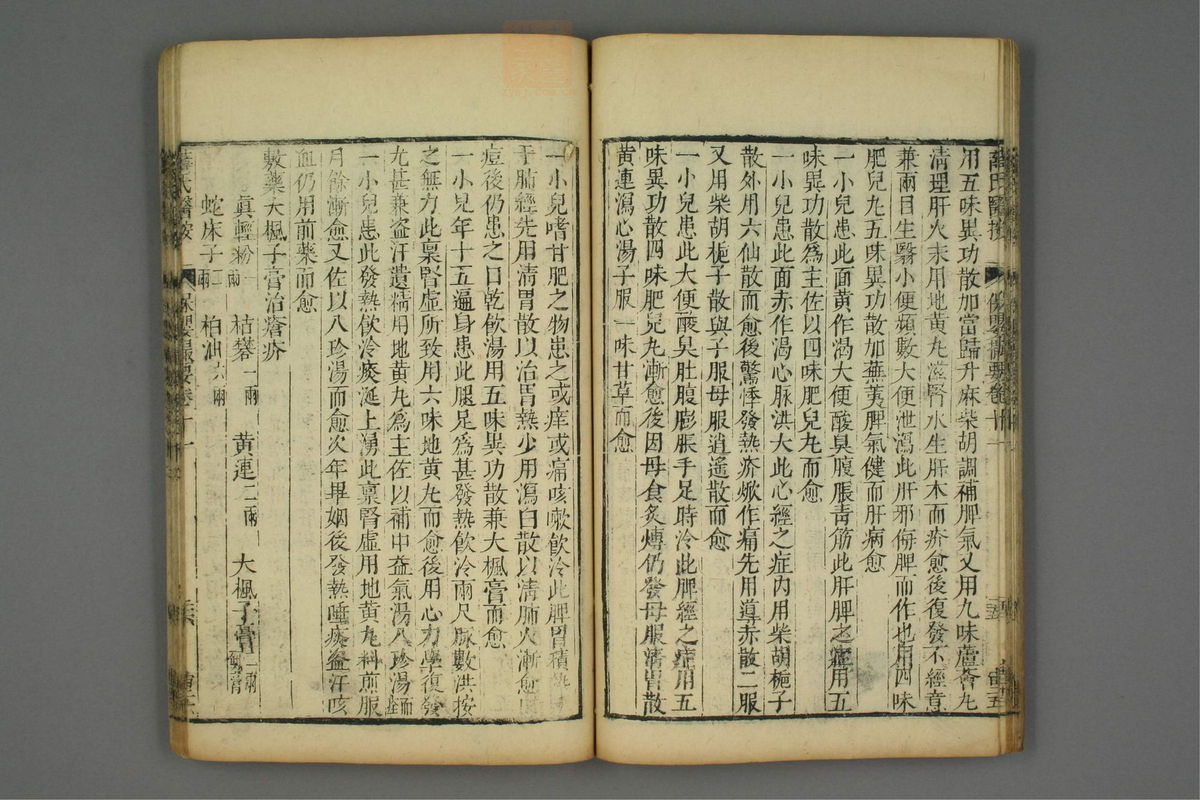 薛氏醫按
保嬰撮要卷十一
用五味異功散加當歸升麻柴胡調補脾氣又用九味蘆薈丸
清理肝火末用地黃丸滋腎水生肝木而疥愈後復發不經意
兼兩目生翳小便頻數大便泄瀉此肝邪侮脾而作也用四味
肥兒丸五味異功散加蕪荑脾氣健而肝病愈
一小兒患此面黃作渴大便酸臭腹脹青筋此肝脾之症用五
味異功散爲主佐以四味肥兒丸而愈
一小兒患此面赤作渴心脉洪大此心經之症內用柴胡梔子
散外用六仙散而愈後驚悸發熱疥焮作痛先用導赤散二服
又用柴胡梔子散與子服母服逍遙散而愈
一小兒患此大便酸臭肚腹膨脹手足時冷此脾經之症用五
味異功散四味肥兒丸漸愈後因母食炙煿仍發母服清胃散
黃連瀉心湯子服一味甘草而愈
一小兒嗜甘肥之物患之或痒或痛咳嗽飲冷此脾胃積熱
于肺經先用清胃散以治胃熱少用瀉白散以清肺火漸愈
痘後仍患之口乾飲湯用五味異功散兼大楓膏而愈
一小兒年十五遍身患此腿足爲甚發熱飲冷兩尺脉數洪按
之無力此稟腎虛所致用六味地黃丸而愈後用心力學復發
尤甚兼盗汗遺精用地黃丸爲主佐以補中益氣湯八珍湯而痊
一小兒患此發熱飲冷痰涎上湧此稟腎虛用地黃丸料煎服
月餘漸愈又佐以八珍湯而愈次年畢姻後發熱唾痰盗汗咳
血仍用前藥而愈
敷藥大楓子膏治瘡疥
真輕粉一兩 枯礬一兩 黃連二兩 大楓子膏一兩
蛇床子二兩 柏油六兩
薛氏醫按
保嬰撮要卷十一